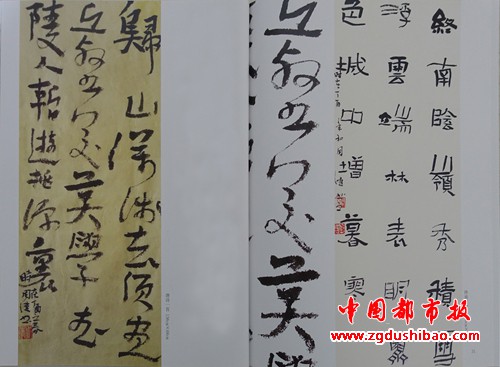 歸山深淺去須盡
丘壑美莫學武
陵人暫遊桃源裏
終南陰嶺秀積雪
浮雲端林表明霽
色城中增暮寒
丘壑美莫學
中国都市报
www.zgdushibao.com